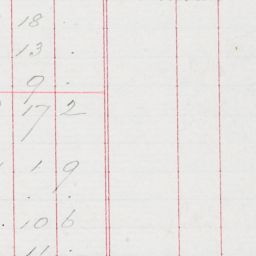 18 .
13 .
9 .
17 2
1 9
. .
. 10 6
11 .